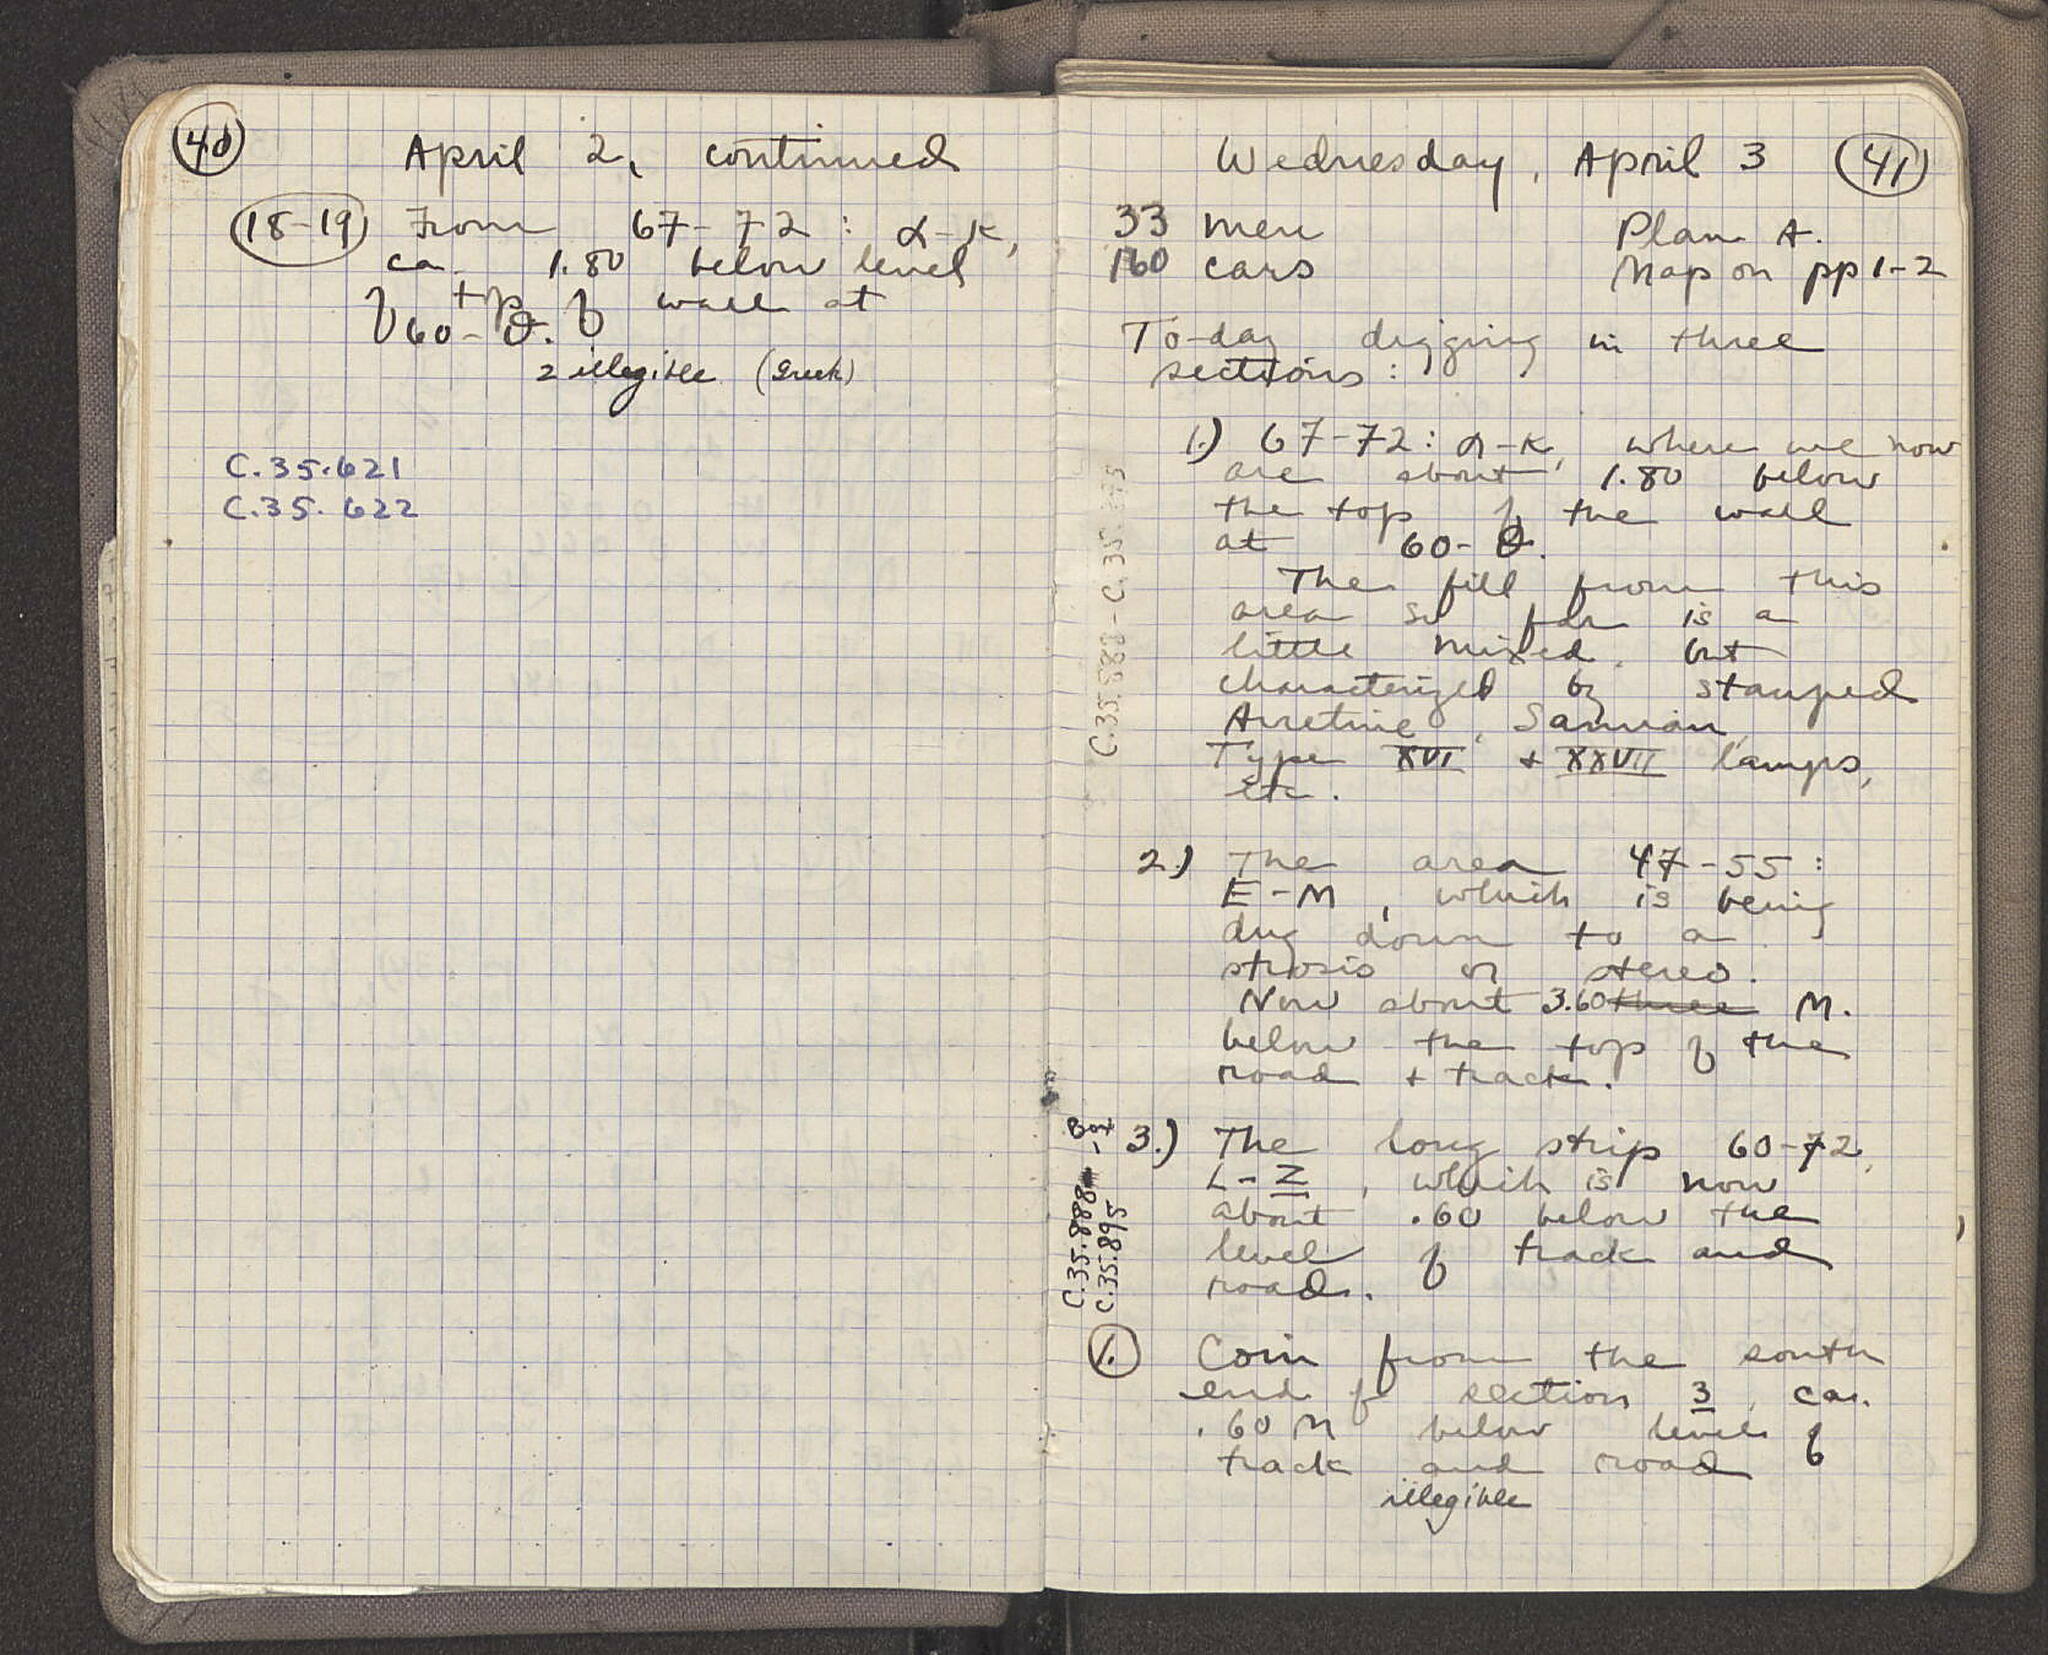 40
April 2, continued
18-19 From 67-72: α-K,
ca. 1.80 below level
of top of wall at
60-θ.
2 illegible (Greek)
C.35.621
C.35.622
Wednesday, April 3 41
33 men Plan A.
160 cars Map on pp 1-2
To-day digging in three
sections:
1.) 67-72: α-K, where we now
are about 1.80 below
the top of the wall
at 60-θ.
The fill from this
area so far is a
little mixed, but
characterized by stamped
Arretine, Samian,
Type XVI + XXVII lamps,
etc.
2.) The area 47-55:
E-M, which is being
dug down to a
strosis or stereo.
Now about 3.60 three M.
below the top of the
road + track.
3.) The long strip 60-72,
L-Z, which is now
about .60 below the
level of track and
road.
C.35.888 - Box
C.35.895
1. Coin from the south
end of section 3, ca.
.60 M below level of
track and road
illegible